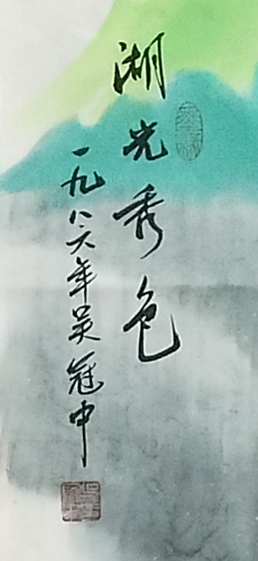 湖光秀色
一九八六年吴冠中